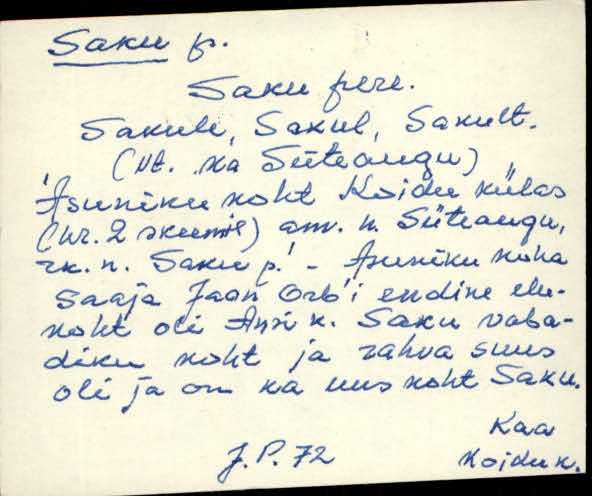 Saku p.
Saku pere.
Sakule, Sakul, Sakult.
(Vt. ka Süteaugu)
'Asuniku koht Koidu külas
(nr. 2 skeemil) am. n. Süteaugu,
rk. n. Saku p.' - Asuniku koha
saaja Jaan Orb'i endine elu-
koht oli Ansi k. Saku vaba-
diku koht ja rahva suus
oli ja on ka uus koht Saku.
Kaa
J.P. 72 Koidu k.